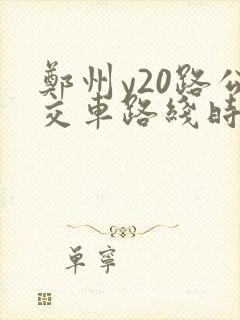 鄭州y20路公
交車路綫時
單寧